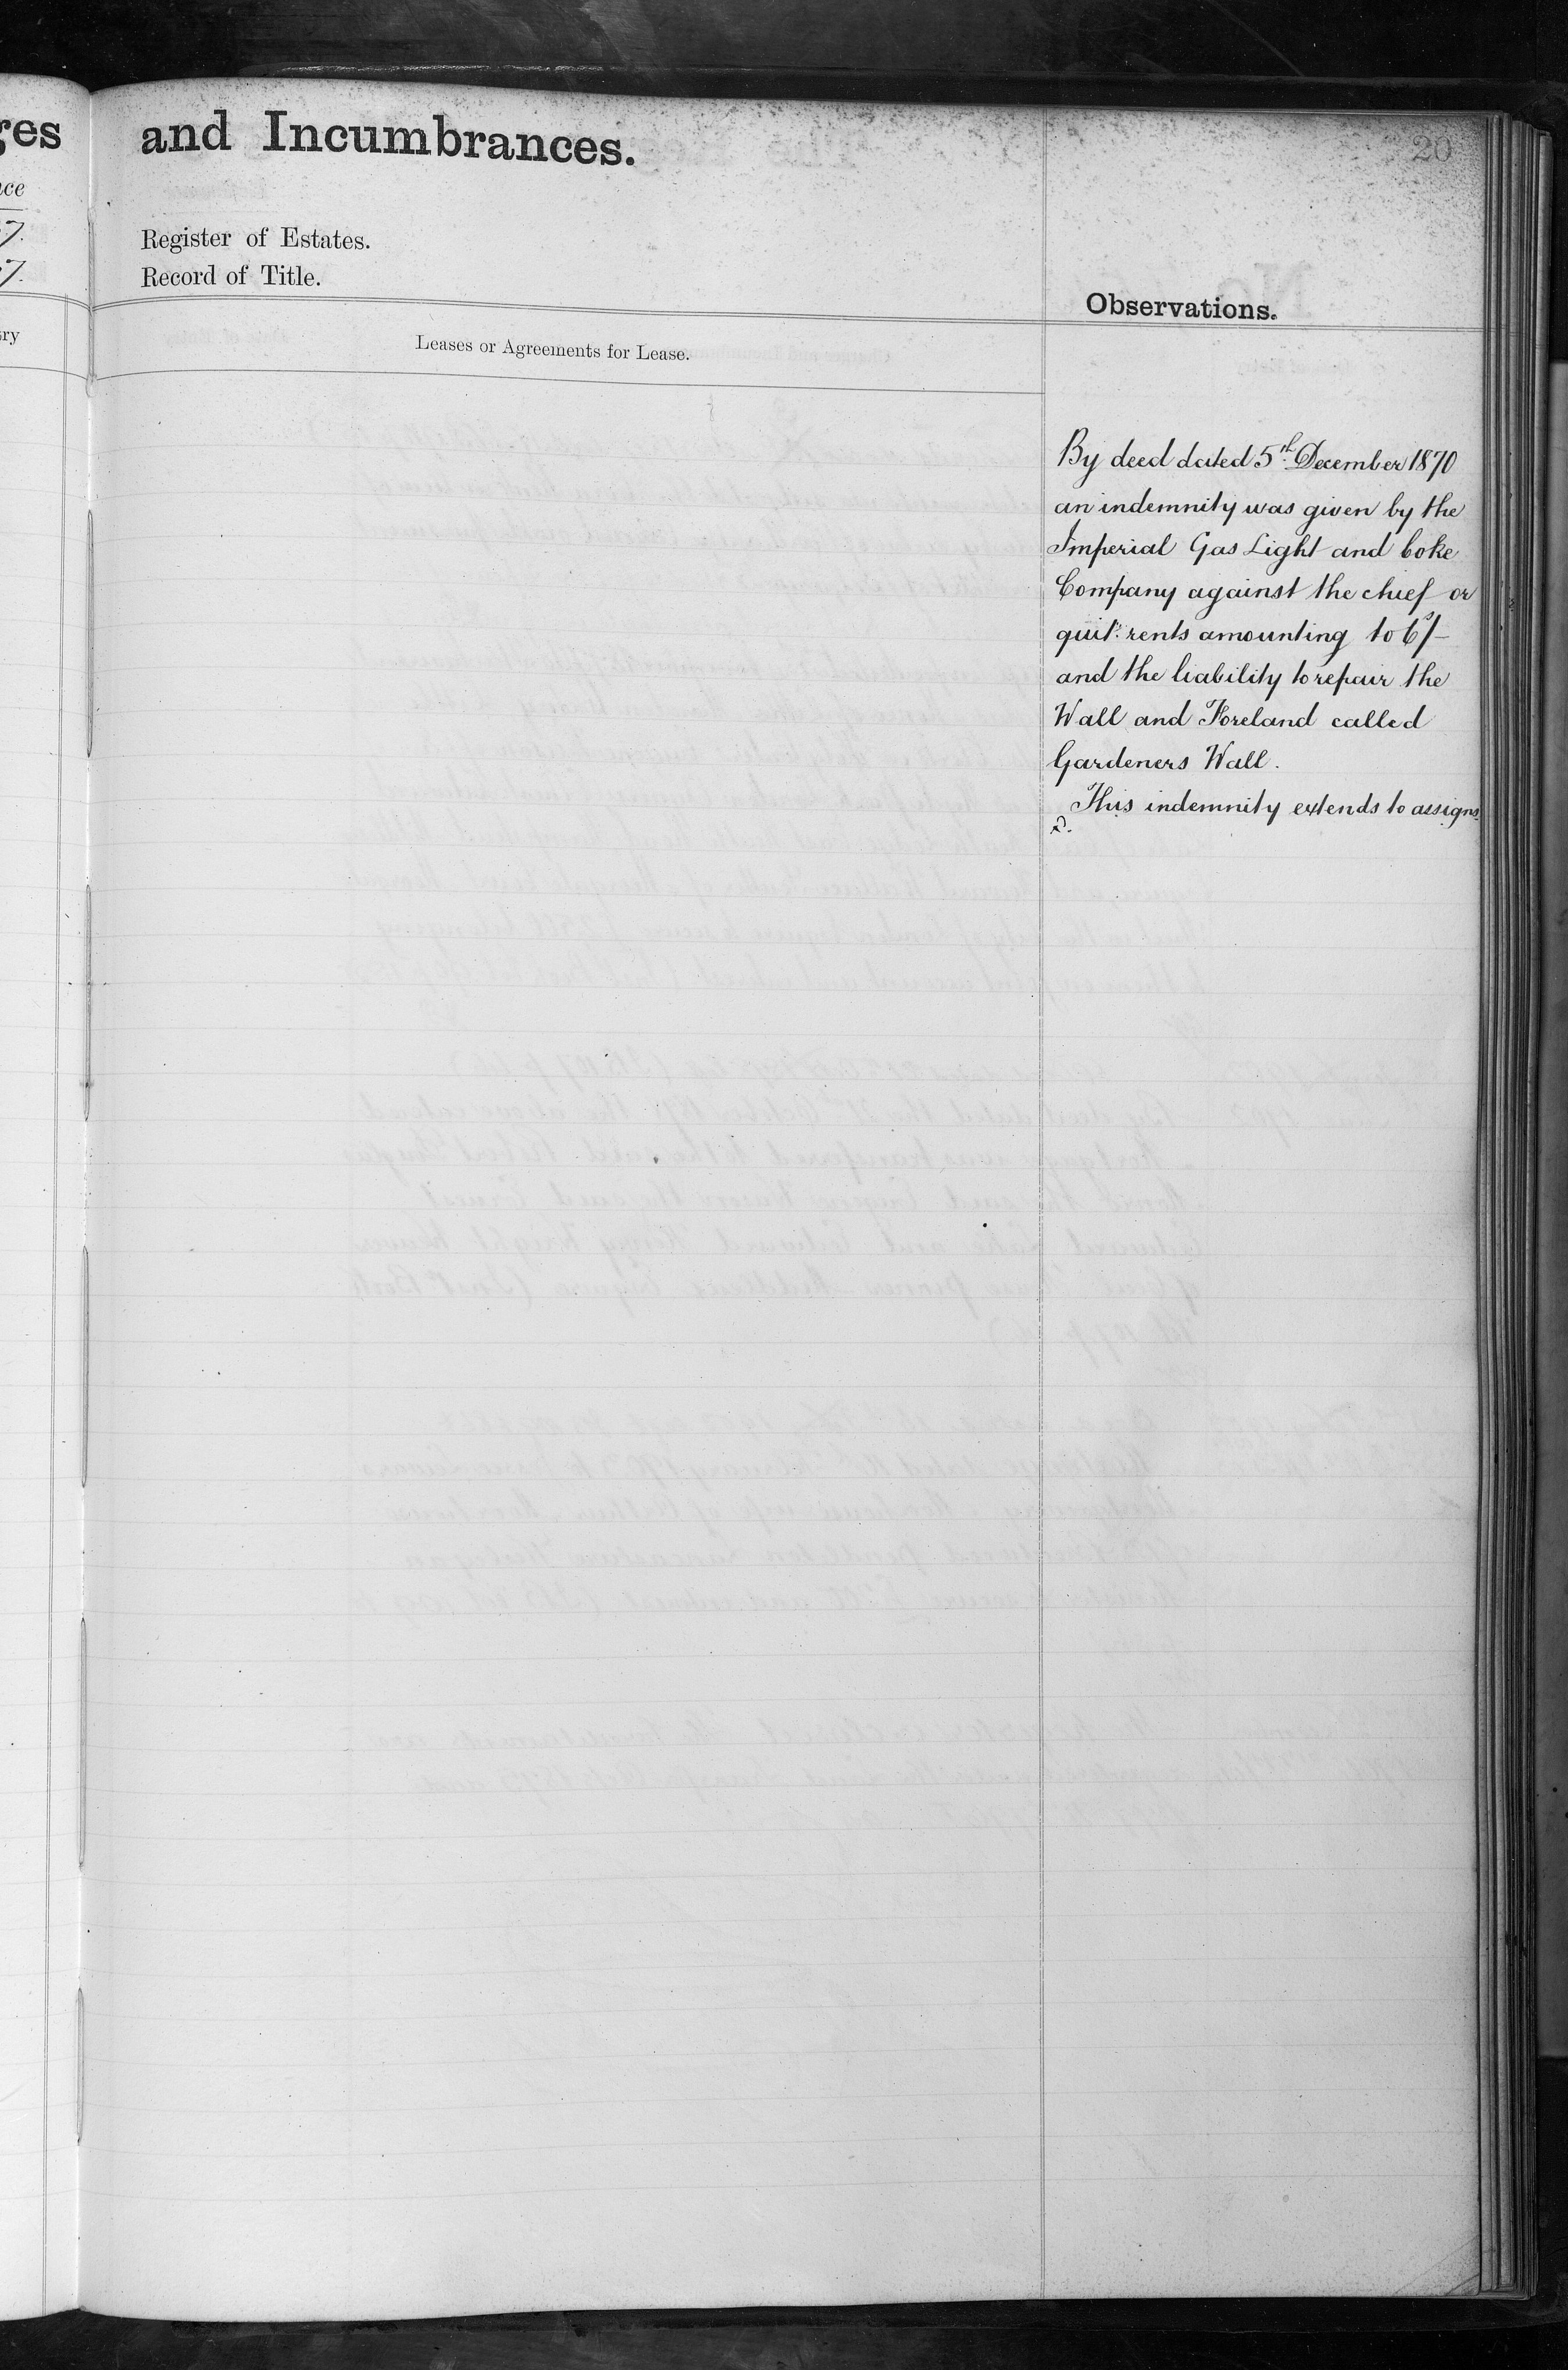 ges
and Incumbrances.
20
Register of Estates.
Record of Title.
Observations.
Leases or Agreements for Lease.
By deed dated 5th December 1870
an indemnity was given by the
Imperial Gas Light and Coke
Company against the chief or
quit rents amounting to 6s/-
and the liability to repair the
Wall and Foreland called
Gardeners Wall.
This indemnity extends to assigns.